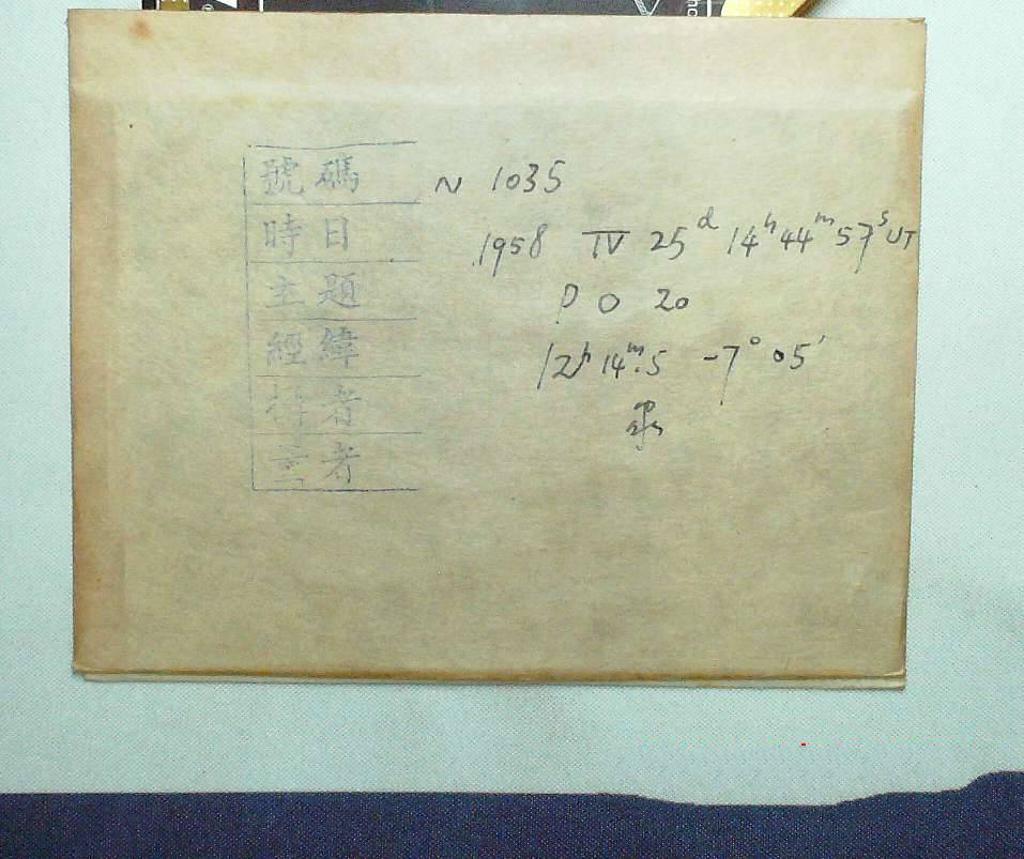 號碼 N 1035
時日 1958 IV 25d 14h 44m 57s UT
主題 P O 20
經緯 12h 14m.5 -7° 05'
者
者